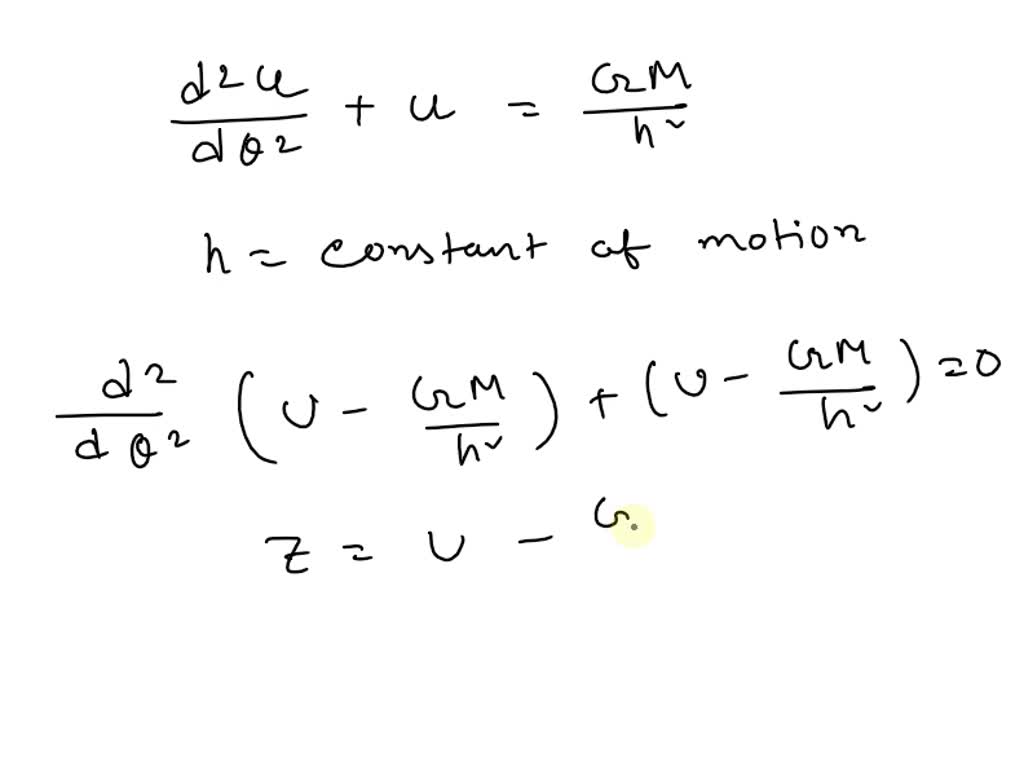 d²u/dθ² + u = GM/h²
h = constant of motion
d²/dθ² (u - GM/h²) + (u - GM/h²) = 0
z = u - G